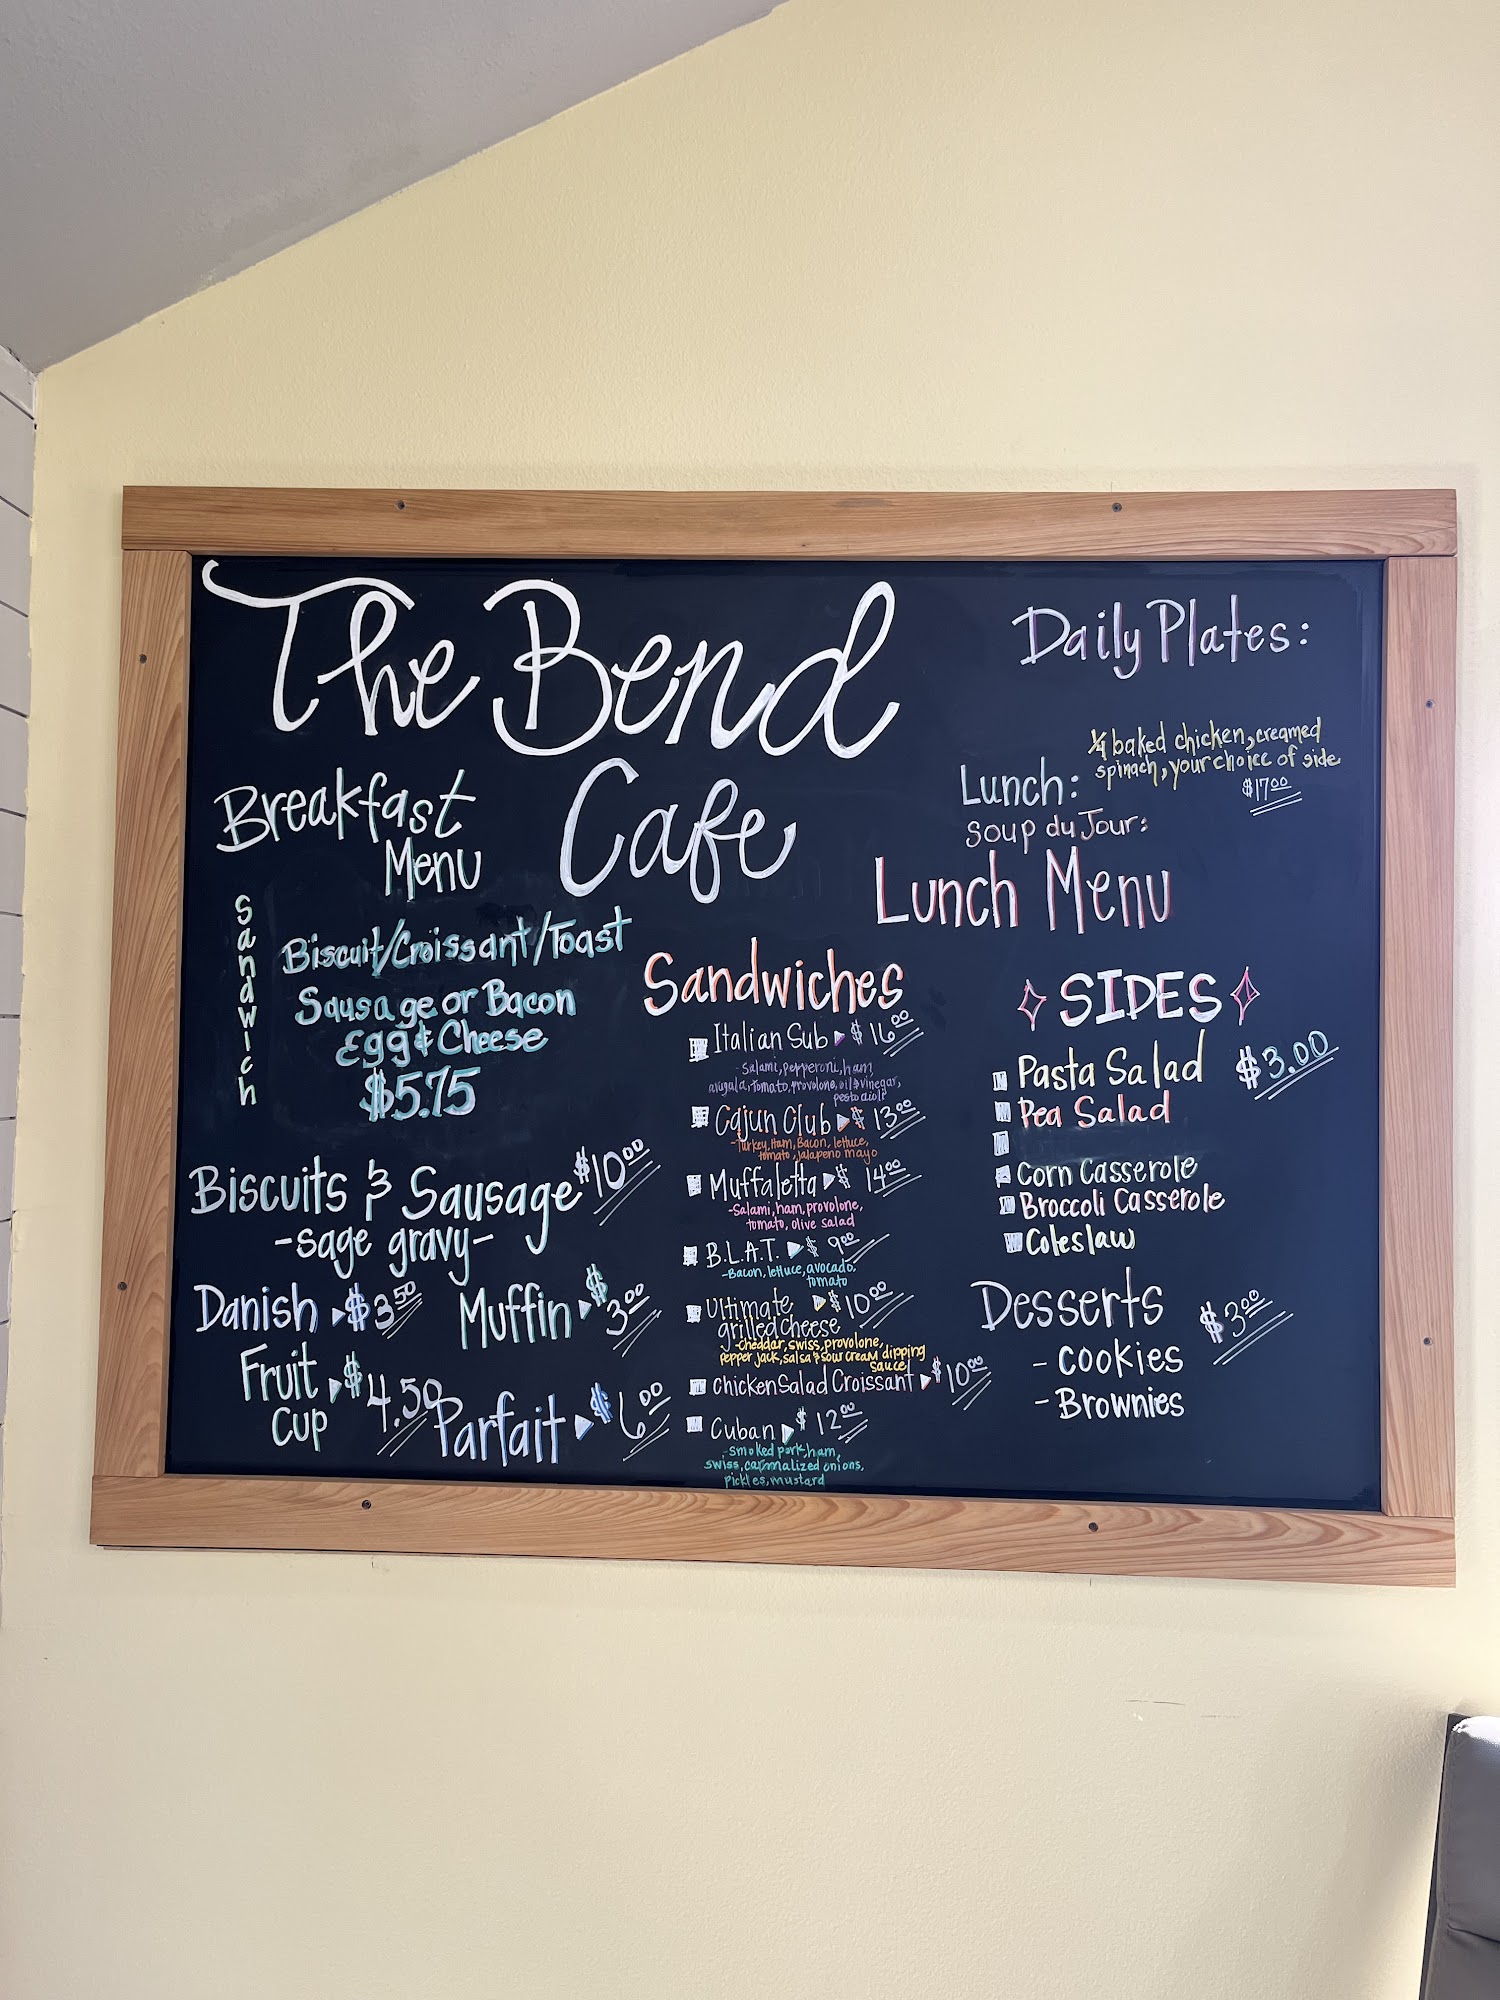 The Bend
Cafe
Breakfast
Menu
Sandwich
Biscuit/Croissant/Toast
Sausage or Bacon
Egg & Cheese
$5.75
Biscuits & Sausage $10.00
-sage gravy-
Danish $3.50
Muffin $3.00
Fruit
Cup $4.50
Parfait $6.00
Daily Plates:
Lunch: 1/4 baked chicken, creamed
spinach, your choice of side
$17.00
Soup du Jour:
Lunch Menu
Sandwiches
Italian Sub $16.00
-Salami, pepperoni, ham,
arugala, tomato, provolone, oil & vinegar,
pesto aioli
Cajun Club $13.00
-Turkey, Ham, Bacon, lettuce,
tomato, jalapeno mayo
Muffaletta $14.00
-Salami, ham, provolone,
tomato, olive salad
B.L.A.T. $9.00
-Bacon, lettuce, avocado,
tomato
Ultimate $10.00
grilled cheese
-cheddar, swiss, provolone,
pepper jack, salsa & sour cream dipping
sauce
Chicken Salad Croissant $10.00
Cuban $12.00
-smoked pork, ham,
swiss, carmalized onions,
pickles, mustard
SIDES
Pasta Salad $3.00
Pea Salad
Corn Casserole
Broccoli Casserole
Coleslaw
Desserts $3.00
- Cookies
- Brownies